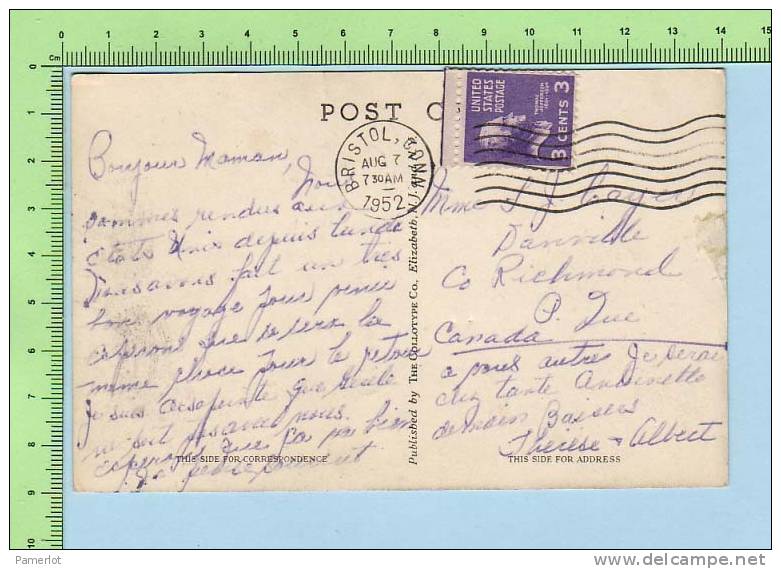 POST C
UNITED
STATES
POSTAGE
3 CENTS 3
BRISTOL, CONN
AUG 7
7 30 AM
1952
Bonjour Maman, Nous
sommes rendus aux
états Unis depuis lundi
Nous avons fait un très
bon voyage
espérons que ce sera la
même chose pour le retour
Je suis
ne soit pas avec nous.
espérons que ça va bien
Published by THE COLLOTYPE Co., Elizabeth, N. J.
Mme
Danville
Co Richmond
P. Que
Canada
à vous autres Je serai
chez tante Antoinette
demain Baisers
Thérèse & Albert
THIS SIDE FOR CORRESPONDENCE
THIS SIDE FOR ADDRESS
0 1 2 3 4 5 6 7 8 9 10 11 12 13 14
Cm
0
1
2
3
4
5
6
7
8
9
10
Pamerlot
www.delcampe.net